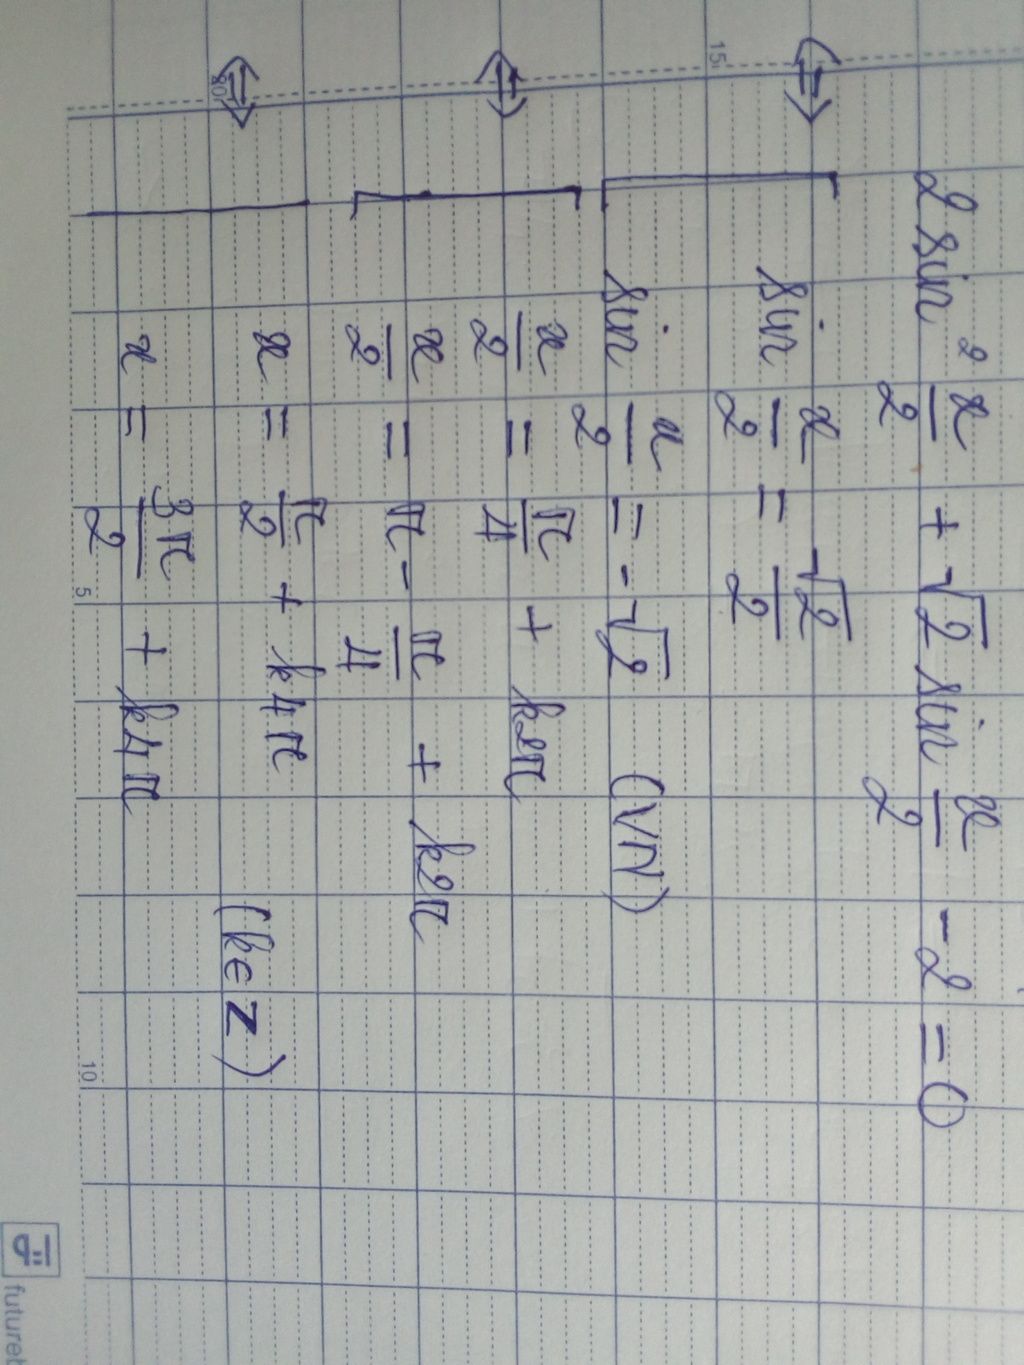 2 sin² x/2 + √2 sin x/2 - 2 = 0
⇔ [ sin x/2 = √2/2
sin x/2 = -√2 (VN)
⇔ [ x/2 = π/4 + k2π
x/2 = π - π/4 + k2π
⇔ [ x = π/2 + k4π
x = 3π/2 + k4π (k ∈ Z)
15
20
5
10